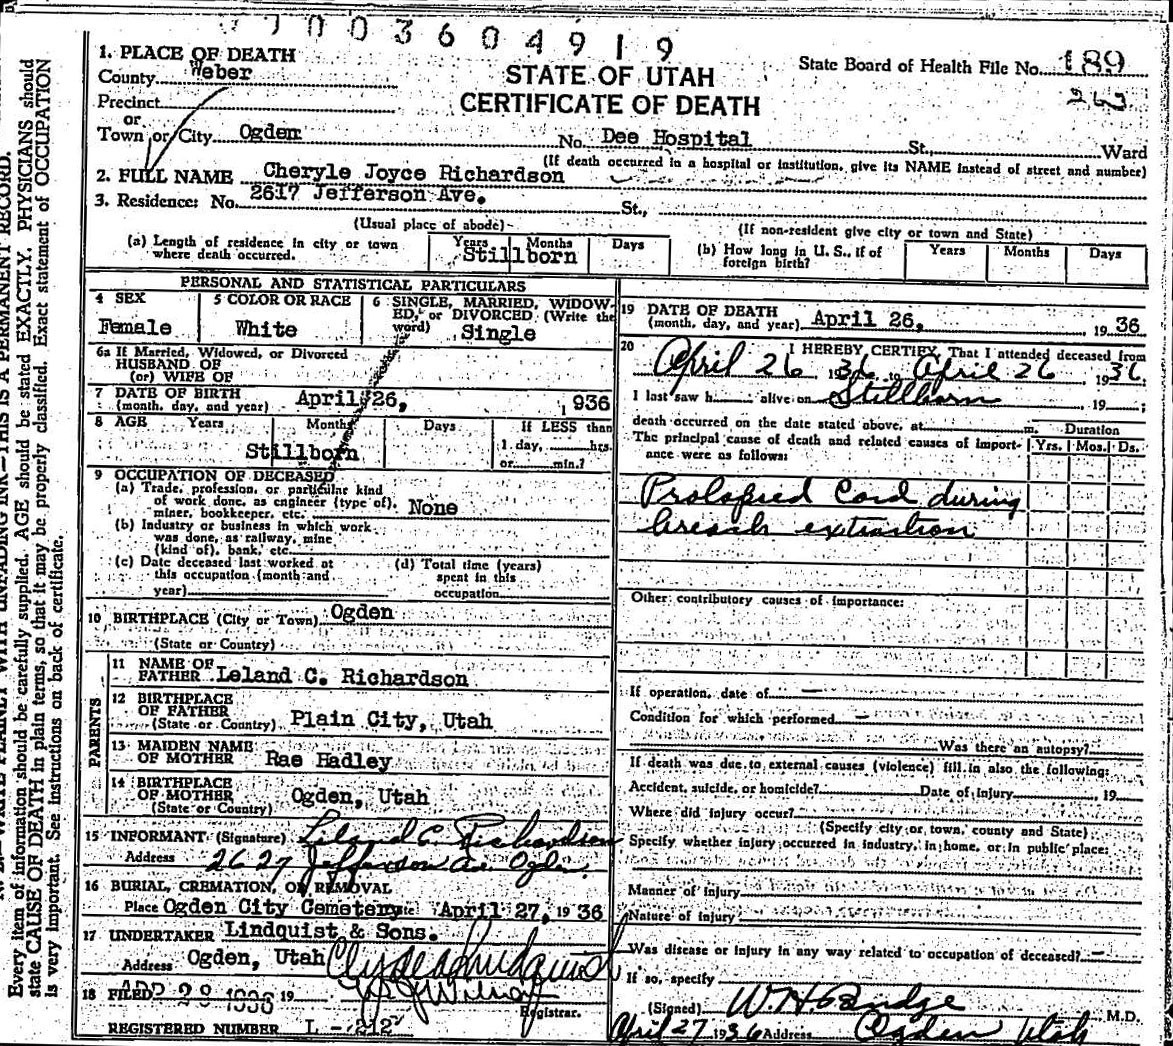 7700360491 9
1. PLACE OF DEATH
County Weber
STATE OF UTAH
State Board of Health File No. 189
Precinct
CERTIFICATE OF DEATH
263
or
Town or City Ogden No. Dee Hospital St., Ward
(If death occurred in a hospital or institution, give its NAME instead of street and number)
2. FULL NAME Cheryle Joyce Richardson
3. Residence: No. 2617 Jefferson Ave. St.,
(Usual place of abode) (If non-resident give city or town and State)
(a) Length of residence in city or town where death occurred. Years Months Days
Stillborn
(b) How long in U. S., if of foreign birth? Years Months Days
PERSONAL AND STATISTICAL PARTICULARS
4 SEX
Female
5 COLOR OR RACE
White
6 SINGLE, MARRIED, WIDOW-
ED, or DIVORCED (Write the
word) Single
6a If Married, Widowed, or Divorced
HUSBAND OF
(or) WIFE OF
7 DATE OF BIRTH
(month, day, and year) April 26, 1936
8 AGE Years Months Days If LESS than
1 day, hrs.
or min.?
Stillborn
9 OCCUPATION OF DECEASED
(a) Trade, profession, or particular kind
of work done, as engineer (type of),
miner, bookkeeper, etc. None
(b) Industry or business in which work
was done, as railway, mine
(kind of), bank, etc.
(c) Date deceased last worked at
this occupation (month and
year)
(d) Total time (years)
spent in this
occupation
10 BIRTHPLACE (City or Town) Ogden
(State or Country)
PARENTS
11 NAME OF
FATHER Leland C. Richardson
12 BIRTHPLACE
OF FATHER
(State or Country) Plain City, Utah
13 MAIDEN NAME
OF MOTHER Rae Hadley
14 BIRTHPLACE
OF MOTHER
(State or Country) Ogden, Utah
15 INFORMANT (Signature) Leland C. Richardson
Address 2627 Jefferson Ave. Ogden.
16 BURIAL, CREMATION, OR REMOVAL
Place Ogden City Cemetery Date April 27, 1936
17 UNDERTAKER Lindquist & Sons.
Address Ogden, Utah Clyde Lindquist
18 FILED APR 28 1936 19
Registrar.
REGISTERED NUMBER L - 212
19 DATE OF DEATH
(month, day, and year) April 26, 1936
20 I HEREBY CERTIFY, That I attended deceased from
April 26 1936 to April 26 1936
I last saw h alive on Stillborn, 19 ;
death occurred on the date stated above, at m. Duration
The principal cause of death and related causes of import-
ance were as follows: Yrs. Mos. Ds.
Prolapsed Cord during
breech extraction
Other contributory causes of importance:
If operation, date of —
Condition for which performed —
Was there an autopsy?
If death was due to external causes (violence) fill in also the following:
Accident, suicide, or homicide? Date of injury, 19
Where did injury occur?
(Specify city or town, county and State)
Specify whether injury occurred in industry, in home, or in public place:
Manner of injury
Nature of injury
Was disease or injury in any way related to occupation of deceased? —
If so, specify
(Signed) M.D.
April 27 1936 Address Ogden Utah
WRITE PLAINLY WITH UNFADING INK—THIS IS A PERMANENT RECORD.
Every item of information should be carefully supplied. AGE should be stated EXACTLY. PHYSICIANS should
state CAUSE OF DEATH in plain terms, so that it may be properly classified. Exact statement of OCCUPATION
is very important. See instructions on back of certificate.